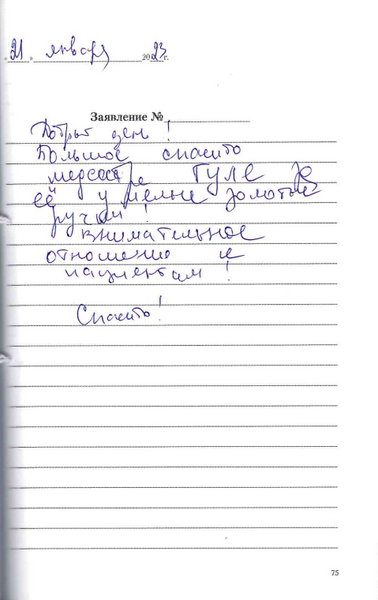 „21" января 2023 г.
Заявление №
Добрый день!
Большое спасибо
медсестре Гуле за
её умелые золотые
ручки!
Внимательное
отношение к
пациентам!
Спасибо!
75